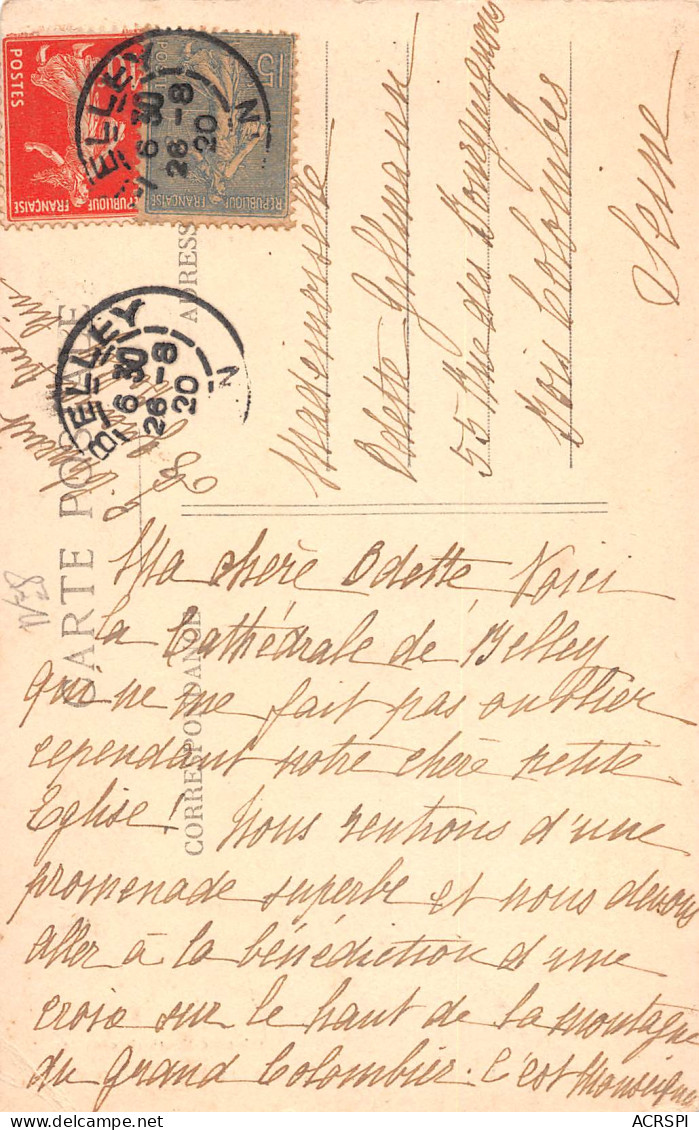 POSTES
RÉPUBLIQUE FRANÇAISE
15
POSTES
RÉPUBLIQUE FRANÇAISE
BELLEY
6 30
26-8
20
BELLEY
6 30
26-8
20
CARTE POSTALE
CORRESPONDANCE
ADRESSE
Mademoiselle
Odette
55 Rue des Bourguignons
Bois Colombes
Seine
Ma chère Odette Voici
la Cathédrale de Belley
qui ne me fait pas oublier
cependant notre chère petite
Eglise! Nous rentrons d'une
promenade superbe et nous devons
aller à la bénédiction d'une
croix sur le haut de la montagne
du grand Colombier. C'est Monseigneur
ACRSPI